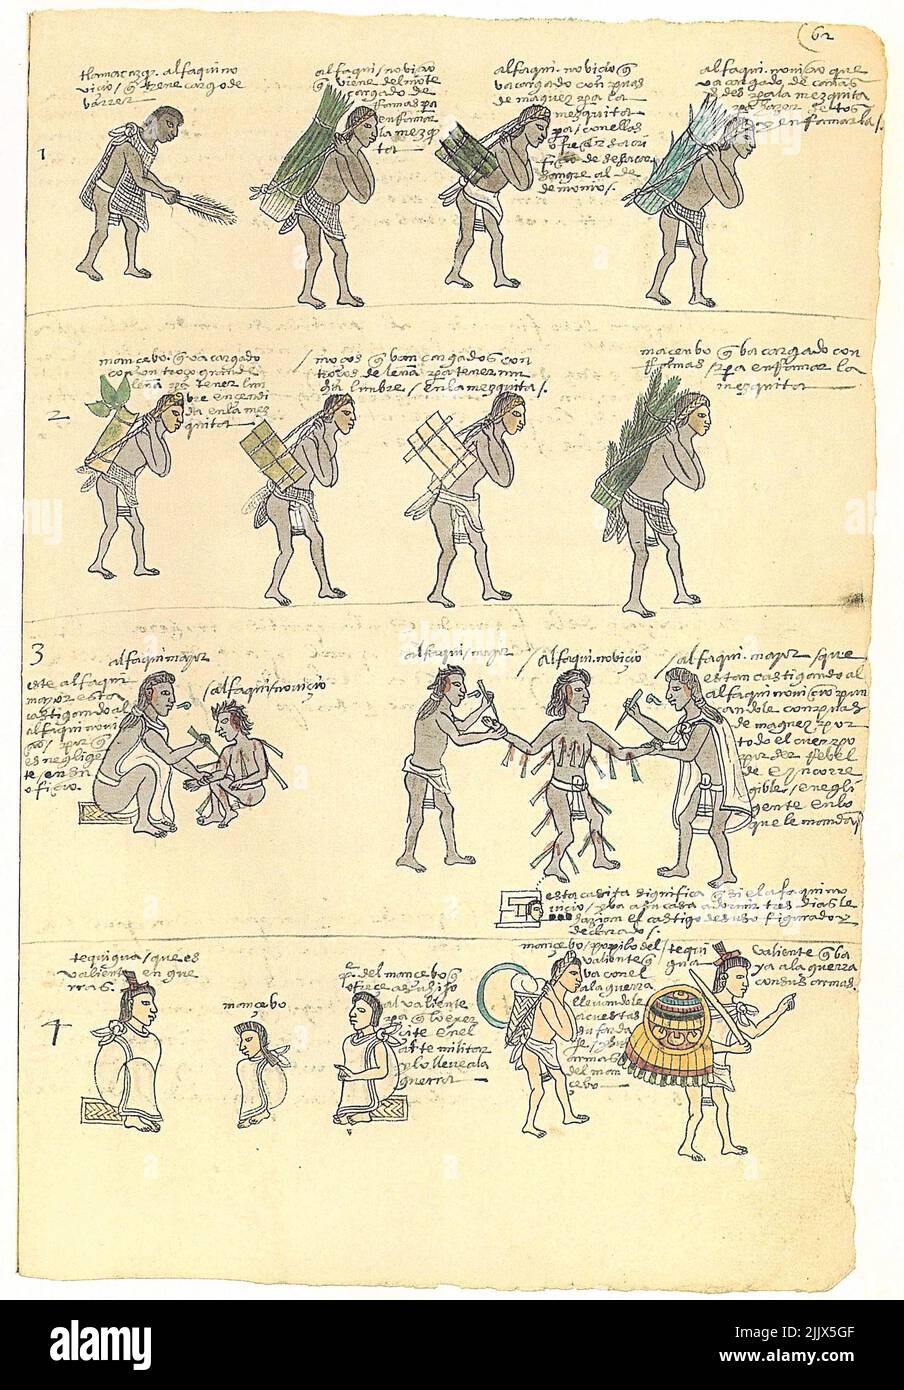 62
tlamacazqui. alfaqui no
vicio / q̃ tiene cargo de
barrer
alfaqui / novicio
q̃ viene del mõte
cargado de
Ramas pa
enRamar
la mezq̃
ta
alfaqui. novicio q̃
va cargado con puas
de maguez pa la
mezquita
pa / con ellas
ofrecer sacri
ficio de
sangre al de
demonio /.
alfaqui. novicio que
va cargado de cañas
pa la mezquita
pa hazer
y enRamarla /.
1
2
mancebo. q̃ va cargado
con un troço grande
leña pa tener lun
bre encendi
da en la mez
quita
moços q̃ van cargados con
troços de leña pa tener
lunbre / en la mezquita /.
macenbo q̃ va cargado con
Ramas / pa enRamar la
mezquita
3
alfaqui mayor
este alfaqui
mayor esta
castigando al
alfaqui novi
cio / por q̃
es neglige
te / en su
oficio.
alfaqui / novicio
alfaqui / mayor
alfaqui. novicio
alfaqui. mayor / que
estan castigando al
alfaqui novicio pun
candole con puas
de maguez por
todo el cuerpo
por ser Rebel
de e yncorre
gible / e negli
gente en lo
que le mandã
esta casita significa q̃ si el alfaqui no
vicio / yva a su casa a dormir tres dias le
hazian el castigo de suso figurado y
declarado /.
4
tequigua / que es
valiente en gue
rras
mancebo
pe. del mancebo q̃
ofrece a su hijo
al valiente
pa q̃ lo exer
cite en el
arte militar
y lo lleve a la
guerra
mancebo / popilo del
valiente q̃
va con el
a la guerra
llevandole
a cuestas
su farda
je / y sus
armas
del man
cebo
tequi
gua
valiente q̃ va
ya a la guerra
con sus armas.
alamy
a
alamy
Image ID: 2JJX5GF
www.alamy.com